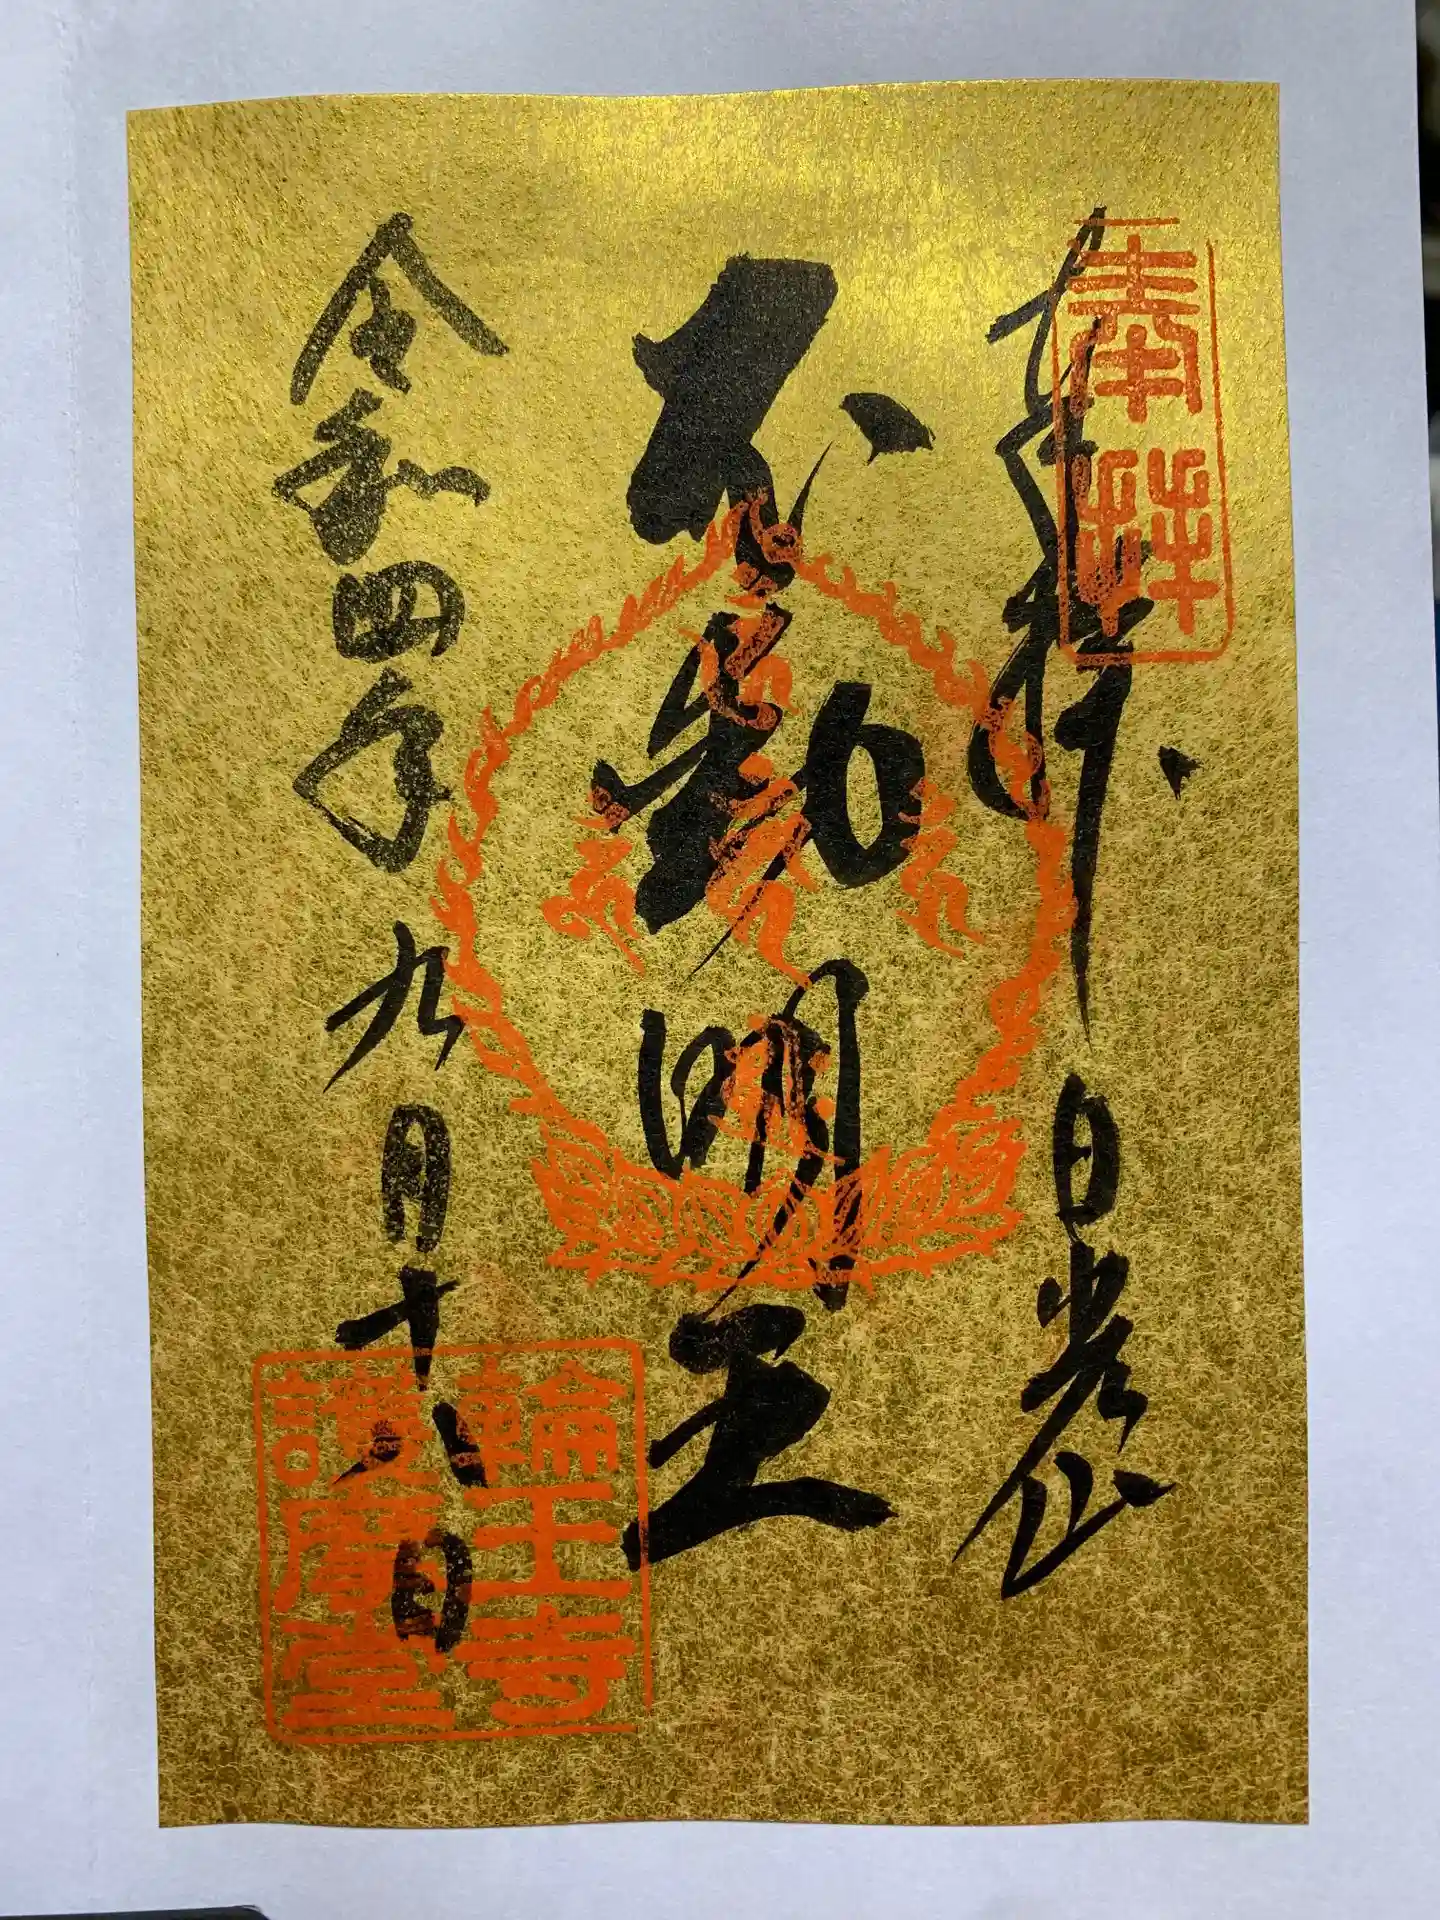 奉拝
奉拝 日光山
不動明王
令和四年九月十八日
輪王寺
護摩堂